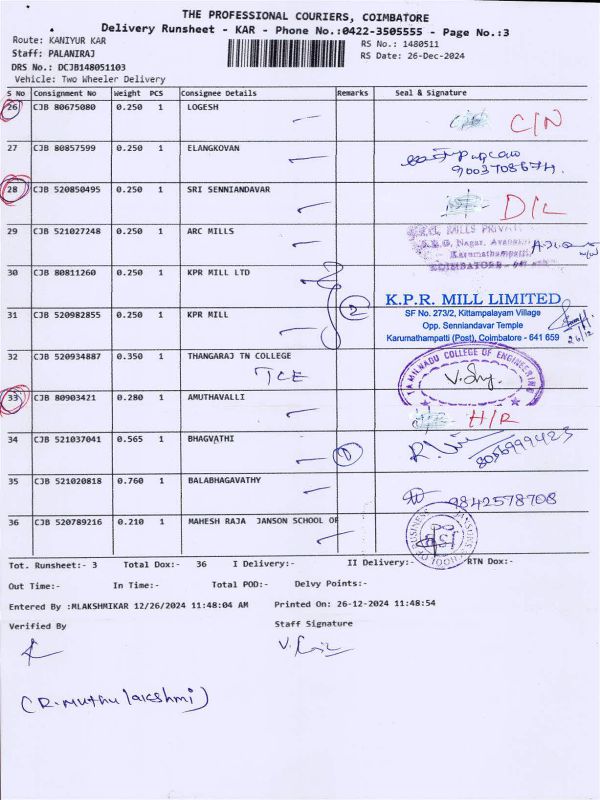 THE PROFESSIONAL COURIERS, COIMBATORE
Delivery Runsheet - KAR - Phone No.:0422-3505555 - Page No.:3
Route: KANIYUR KAR
RS No.: 1480511
Staff: PALANIRAJ
RS Date: 26-Dec-2024
DRS No.: DCJB148051103
Vehicle: Two Wheeler Delivery
S No Consignment No Weight PCS Consignee Details Remarks Seal & Signature
26 CJB 80675080 0.250 1 LOGESH C/N
27 CJB 80857599 0.250 1 ELANGKOVAN
28 CJB 520850495 0.250 1 SRI SENNIANDAVAR D/L
29 CJB 521027248 0.250 1 ARC MILLS
MILLS PRIVA
Nagar,
Karumathampatti
COIMBATORE
30 CJB 80811260 0.250 1 KPR MILL LTD
2
K.P.R. MILL LIMITED
SF No. 273/2, Kittampalayam Village
31 CJB 520982855 0.250 1 KPR MILL
Opp. Senniandavar Temple
Karumathampatti (Post), Coimbatore - 641 659
26/12
32 CJB 520934887 0.350 1 THANGARAJ TN COLLEGE
TCE
TAMILNADU COLLEGE OF ENGINEERING
33 CJB 80903421 0.280 1 AMUTHAVALLI H/R
34 CJB 521037041 0.565 1 BHAGVATHI
8056999423
35 CJB 521020818 0.760 1 BALABHAGAVATHY
9842578708
36 CJB 520789216 0.210 1 MAHESH RAJA JANSON SCHOOL OF
Tot. Runsheet:- 3 Total Dox:- 36 I Delivery:- II Delivery:- RTN Dox:-
Out Time:- In Time:- Total POD:- Delvy Points:-
Entered By :MLAKSHMIKAR 12/26/2024 11:48:04 AM Printed On: 26-12-2024 11:48:54
Verified By Staff Signature
(R. Muthulakshmi)